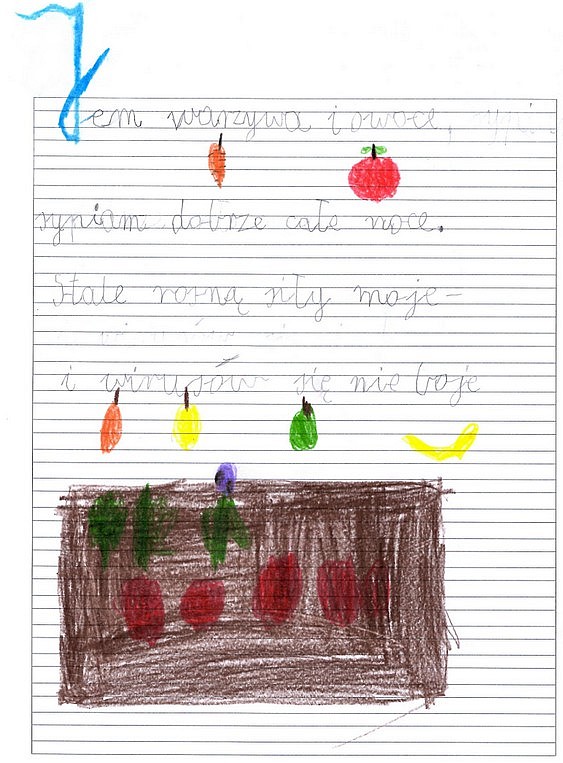 Jem warzywa i owoce,
sypiam dobrze całe noce.
Stale rosną siły moje –
i wirusów się nie boje